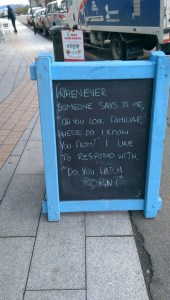 WHENEVER
SOMEONE SAYS TO ME,
"OH YOU LOOK FAMILIAR,
WHERE DO I KNOW
YOU FROM?" I LIKE
TO RESPOND WITH,
"DO YOU WATCH
PORN?"